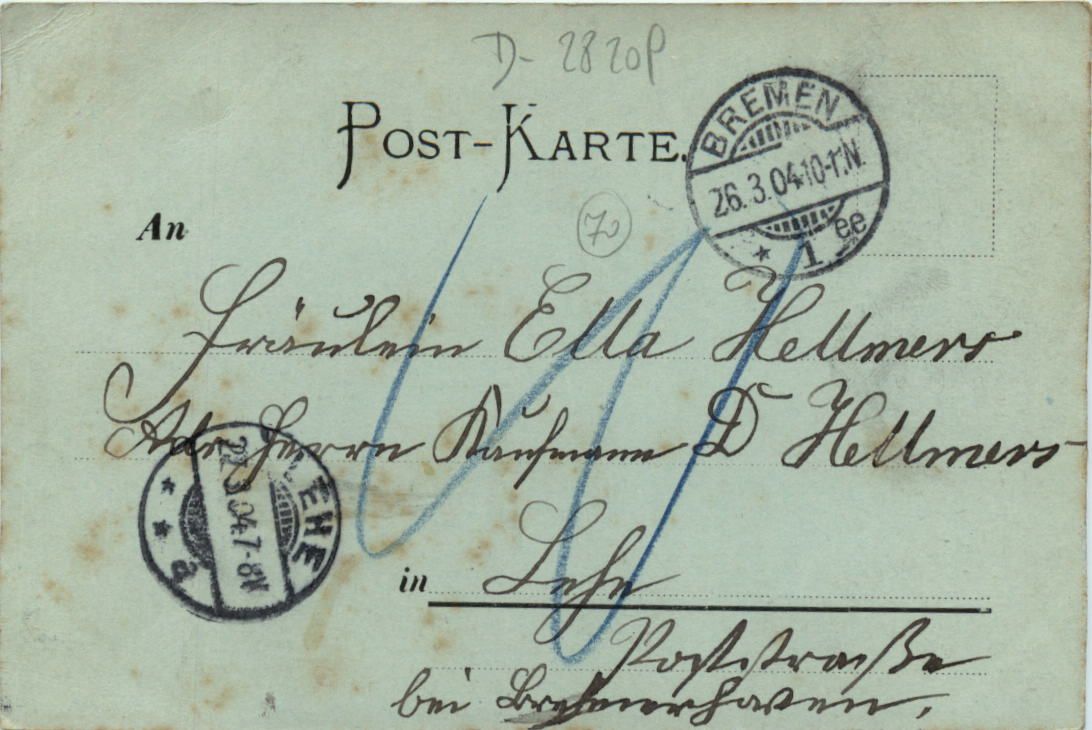 D-2820P
POST-KARTE.
BREMEN
26.3.04 10-11N.
* 1 ee
70
An
Fräulein Ella Hellmers
Adr Herrn Kaufmann D Hellmers
LEHE
27.3.04.7-8V
* * a
in Lehe
Poststraße
bei Bremerhaven.